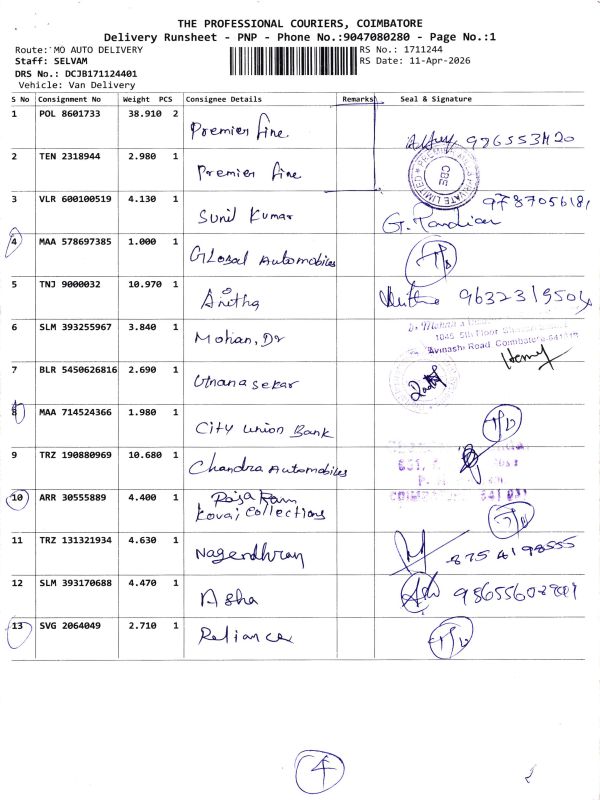 THE PROFESSIONAL COURIERS, COIMBATORE
Delivery Runsheet - PNP - Phone No.:9047080280 - Page No.:1
Route: MO AUTO DELIVERY
Staff: SELVAM
DRS No.: DCJB171124401
Vehicle: Van Delivery
RS No.: 1711244
RS Date: 11-Apr-2026
S No Consignment No Weight PCS Consignee Details Remarks Seal & Signature
1 POL 8601733 38.910 2 Premier fine
2 TEN 2318944 2.980 1 Premier fine
PRIVATE LIMITED CBE
3 VLR 600100519 4.130 1 Sunil Kumar G. Pandian
4 MAA 578697385 1.000 1 Global Automobiles
5 TNJ 9000032 10.970 1 Anitha
6 SLM 393255967 3.840 1 Mohan, Dr
Avinashi Road, Coimbatore-641
7 BLR 5450626816 2.690 1
8 MAA 714524366 1.980 1 City Union Bank
9 TRZ 190880969 10.680 1 Chandra Automobiles
10 ARR 30555889 4.400 1 Raja Ram
Kovai Collections
11 TRZ 131321934 4.630 1 Nagendhran
12 SLM 393170688 4.470 1 Asha
13 SVG 2064049 2.710 1 Reliance
4